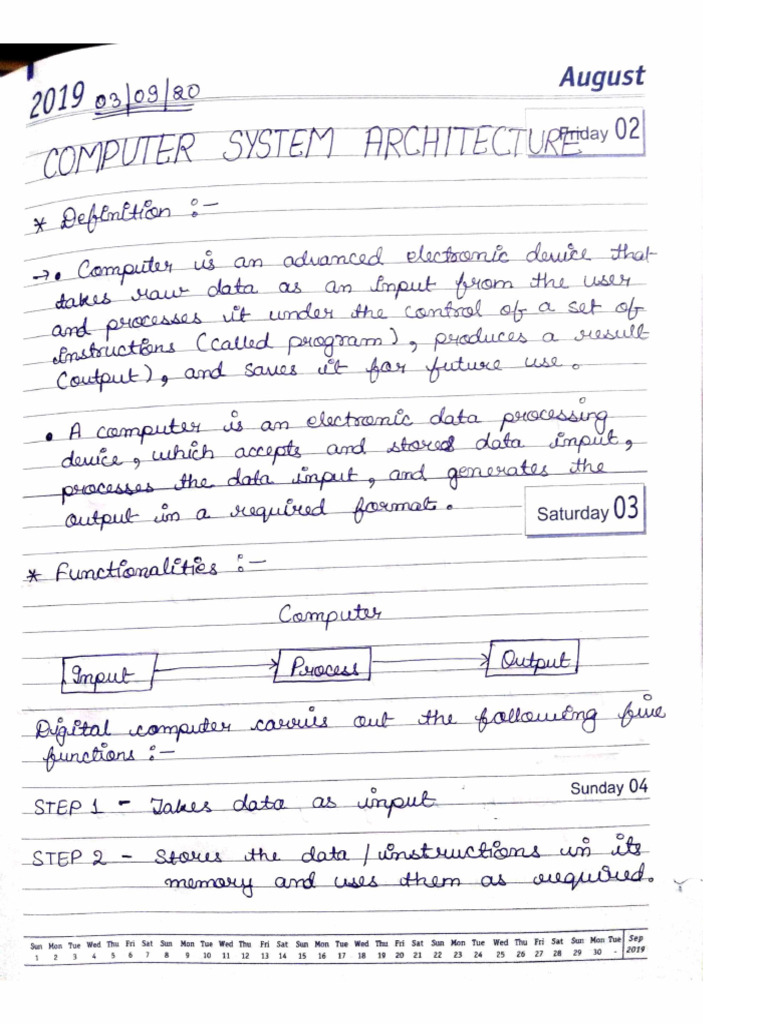 August
2019 03/09/20
Friday 02
COMPUTER SYSTEM ARCHITECTURE
* Definition :-
→ • Computer is an advanced electronic device that
takes raw data as an input from the user
and processes it under the control of a set of
instructions (called program), produces a result
(output), and saves it for future use.
• A computer is an electronic data processing
device, which accepts and stores data input,
processes the data input, and generates the
output in a required format.
Saturday 03
* Functionalities :-
Computer
Input → Process → Output
Digital computer carries out the following five
functions :-
Sunday 04
STEP 1 - Takes data as input
STEP 2 - Stores the data / instructions in its
memory and uses them as required.
Sun Mon Tue Wed Thu Fri Sat Sun Mon Tue Wed Thu Fri Sat Sun Mon Tue Wed Thu Fri Sat Sun Mon Tue Wed Thu Fri Sat Sun Mon Tue Sep
1 2 3 4 5 6 7 8 9 10 11 12 13 14 15 16 17 18 19 20 21 22 23 24 25 26 27 28 29 30 . 2019